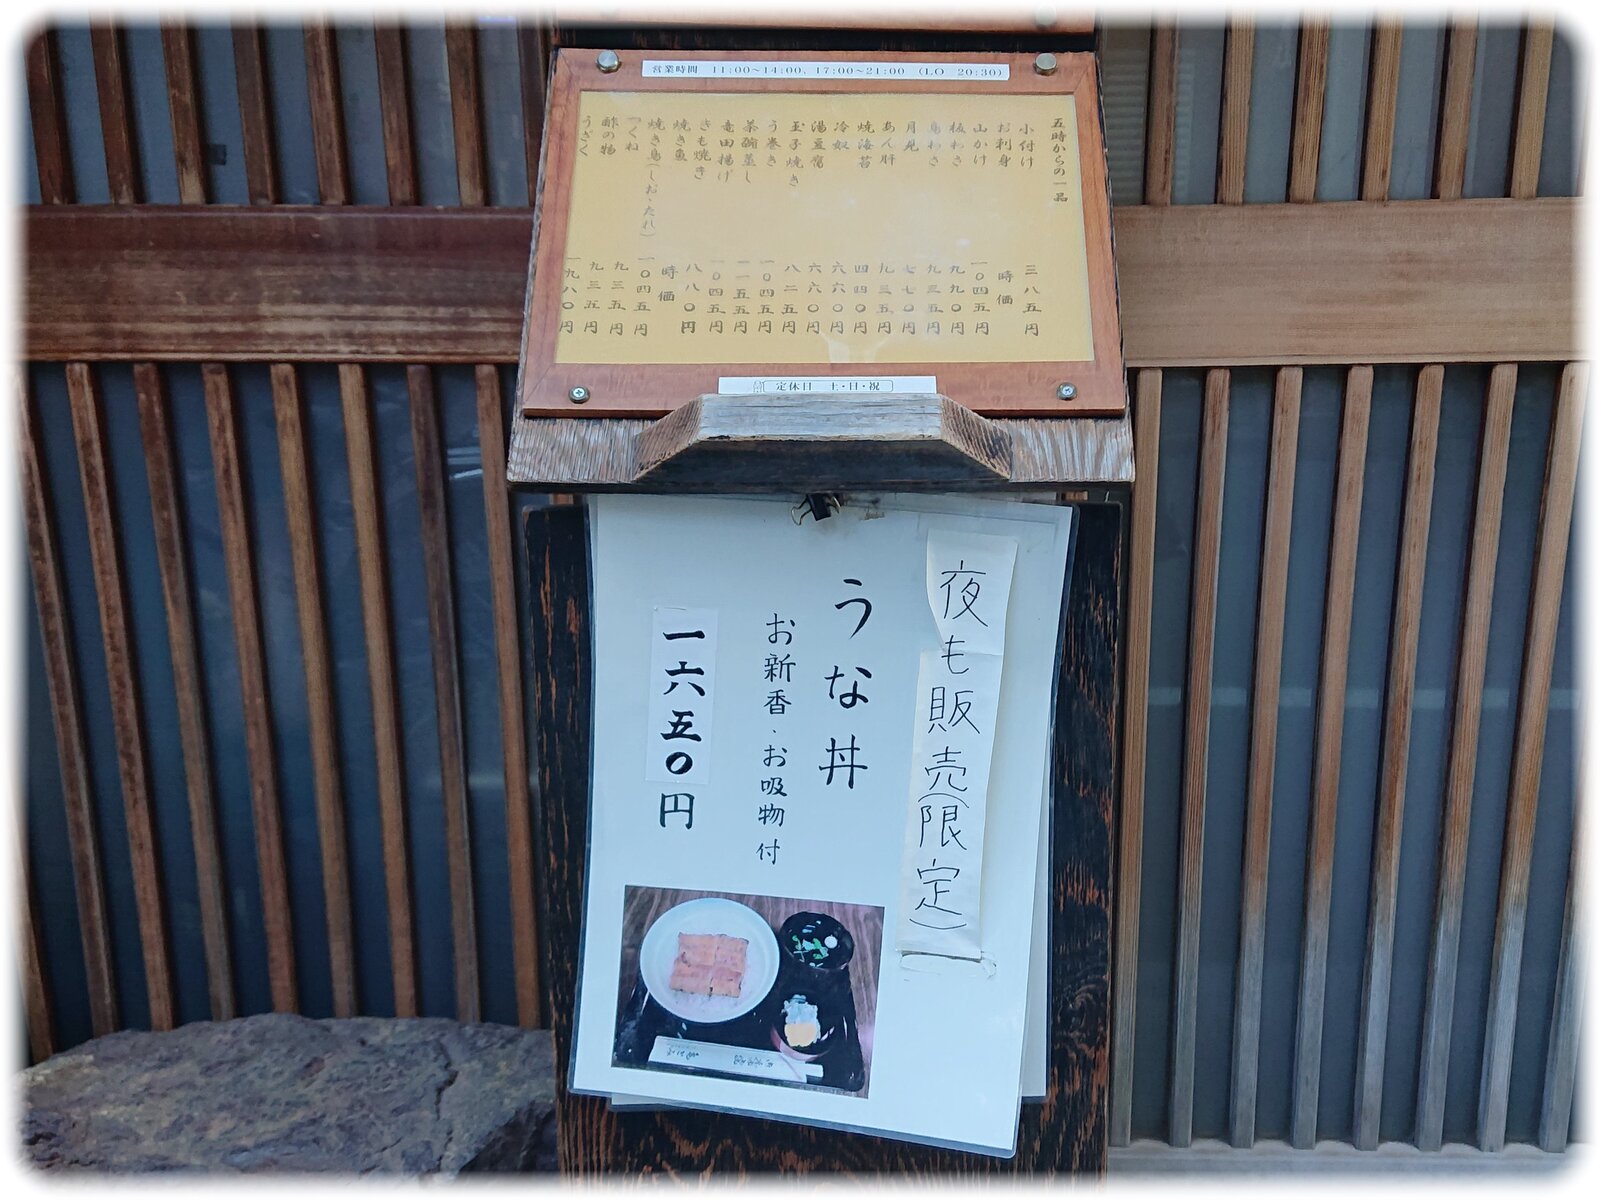 営業時間 11:00~14:00、17:00~21:00 (L.O 20:30)
五時からの一品
小付け 三八五円
お刺身 時価
山かけ 一〇四五円
板わさ 九九〇円
鳥わさ 九三五円
月見 七七〇円
あん肝 九三五円
焼海苔 四四〇円
冷奴 六六〇円
湯豆腐 六六〇円
玉子焼き 八二五円
う巻き 一〇四五円
茶碗蒸し 一一五五円
竜田揚げ 一〇四五円
きも焼き 八八〇円
焼き魚 時価
焼き鳥(しお・たれ) 一〇四五円
つくね 九三五円
酢の物 九三五円
うざく 一九八〇円
定休日 土・日・祝
夜も販売(限定)
うな丼
お新香・お吸物付
一六五〇円